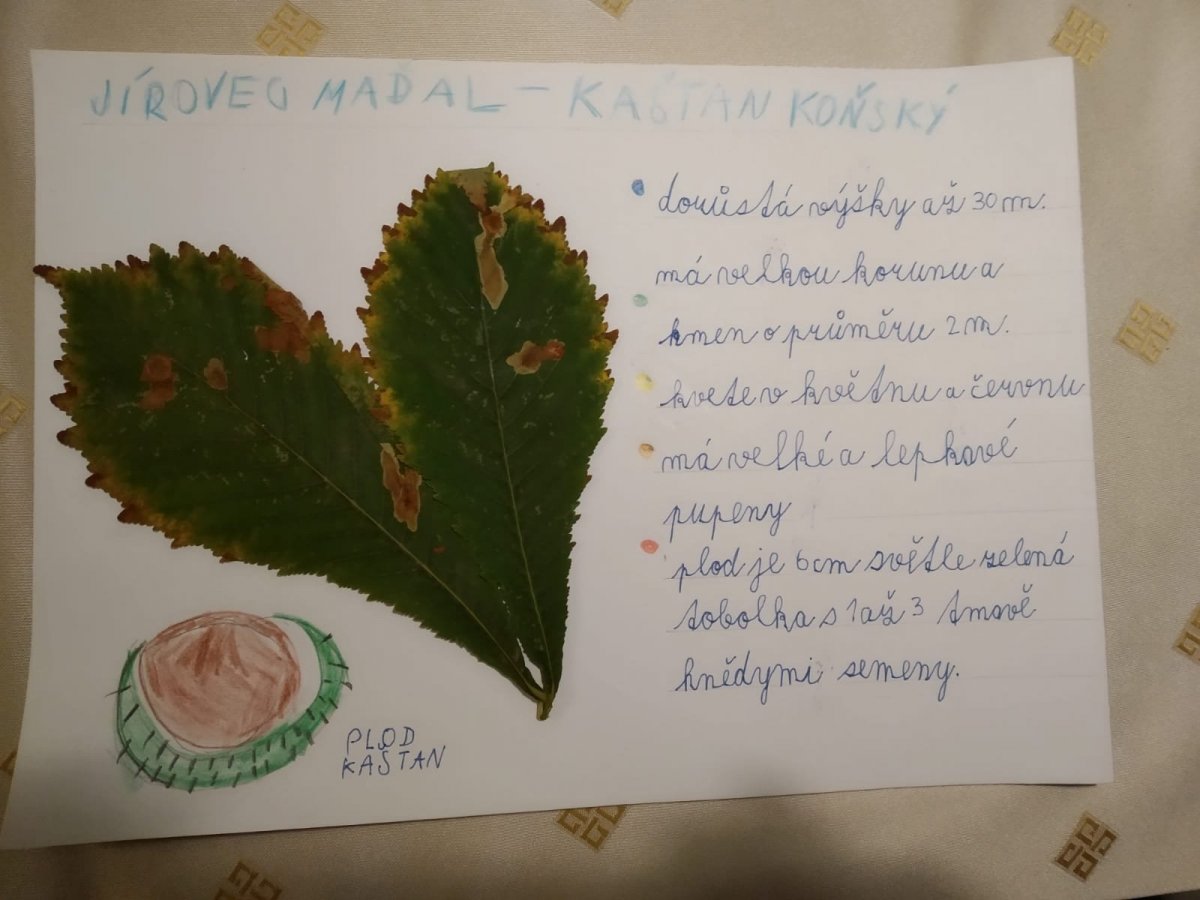 JÍROVEC MAĎAL – KAŠTAN KOŇSKÝ
dorůstá výšky až 30 m.
má velkou korunu a
kmen o průměru 2 m.
kvete v květnu a červnu
má velké a lepkavé
pupeny
plod je 6 cm světle zelená
tobolka s 1 až 3 tmavě
hnědymi semeny.
PLOD
KAŠTAN